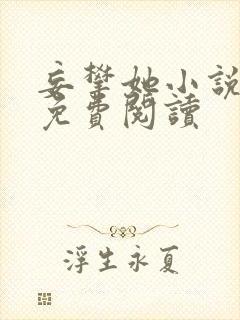 妄攀她小說
免費閱讀
浮生永夏